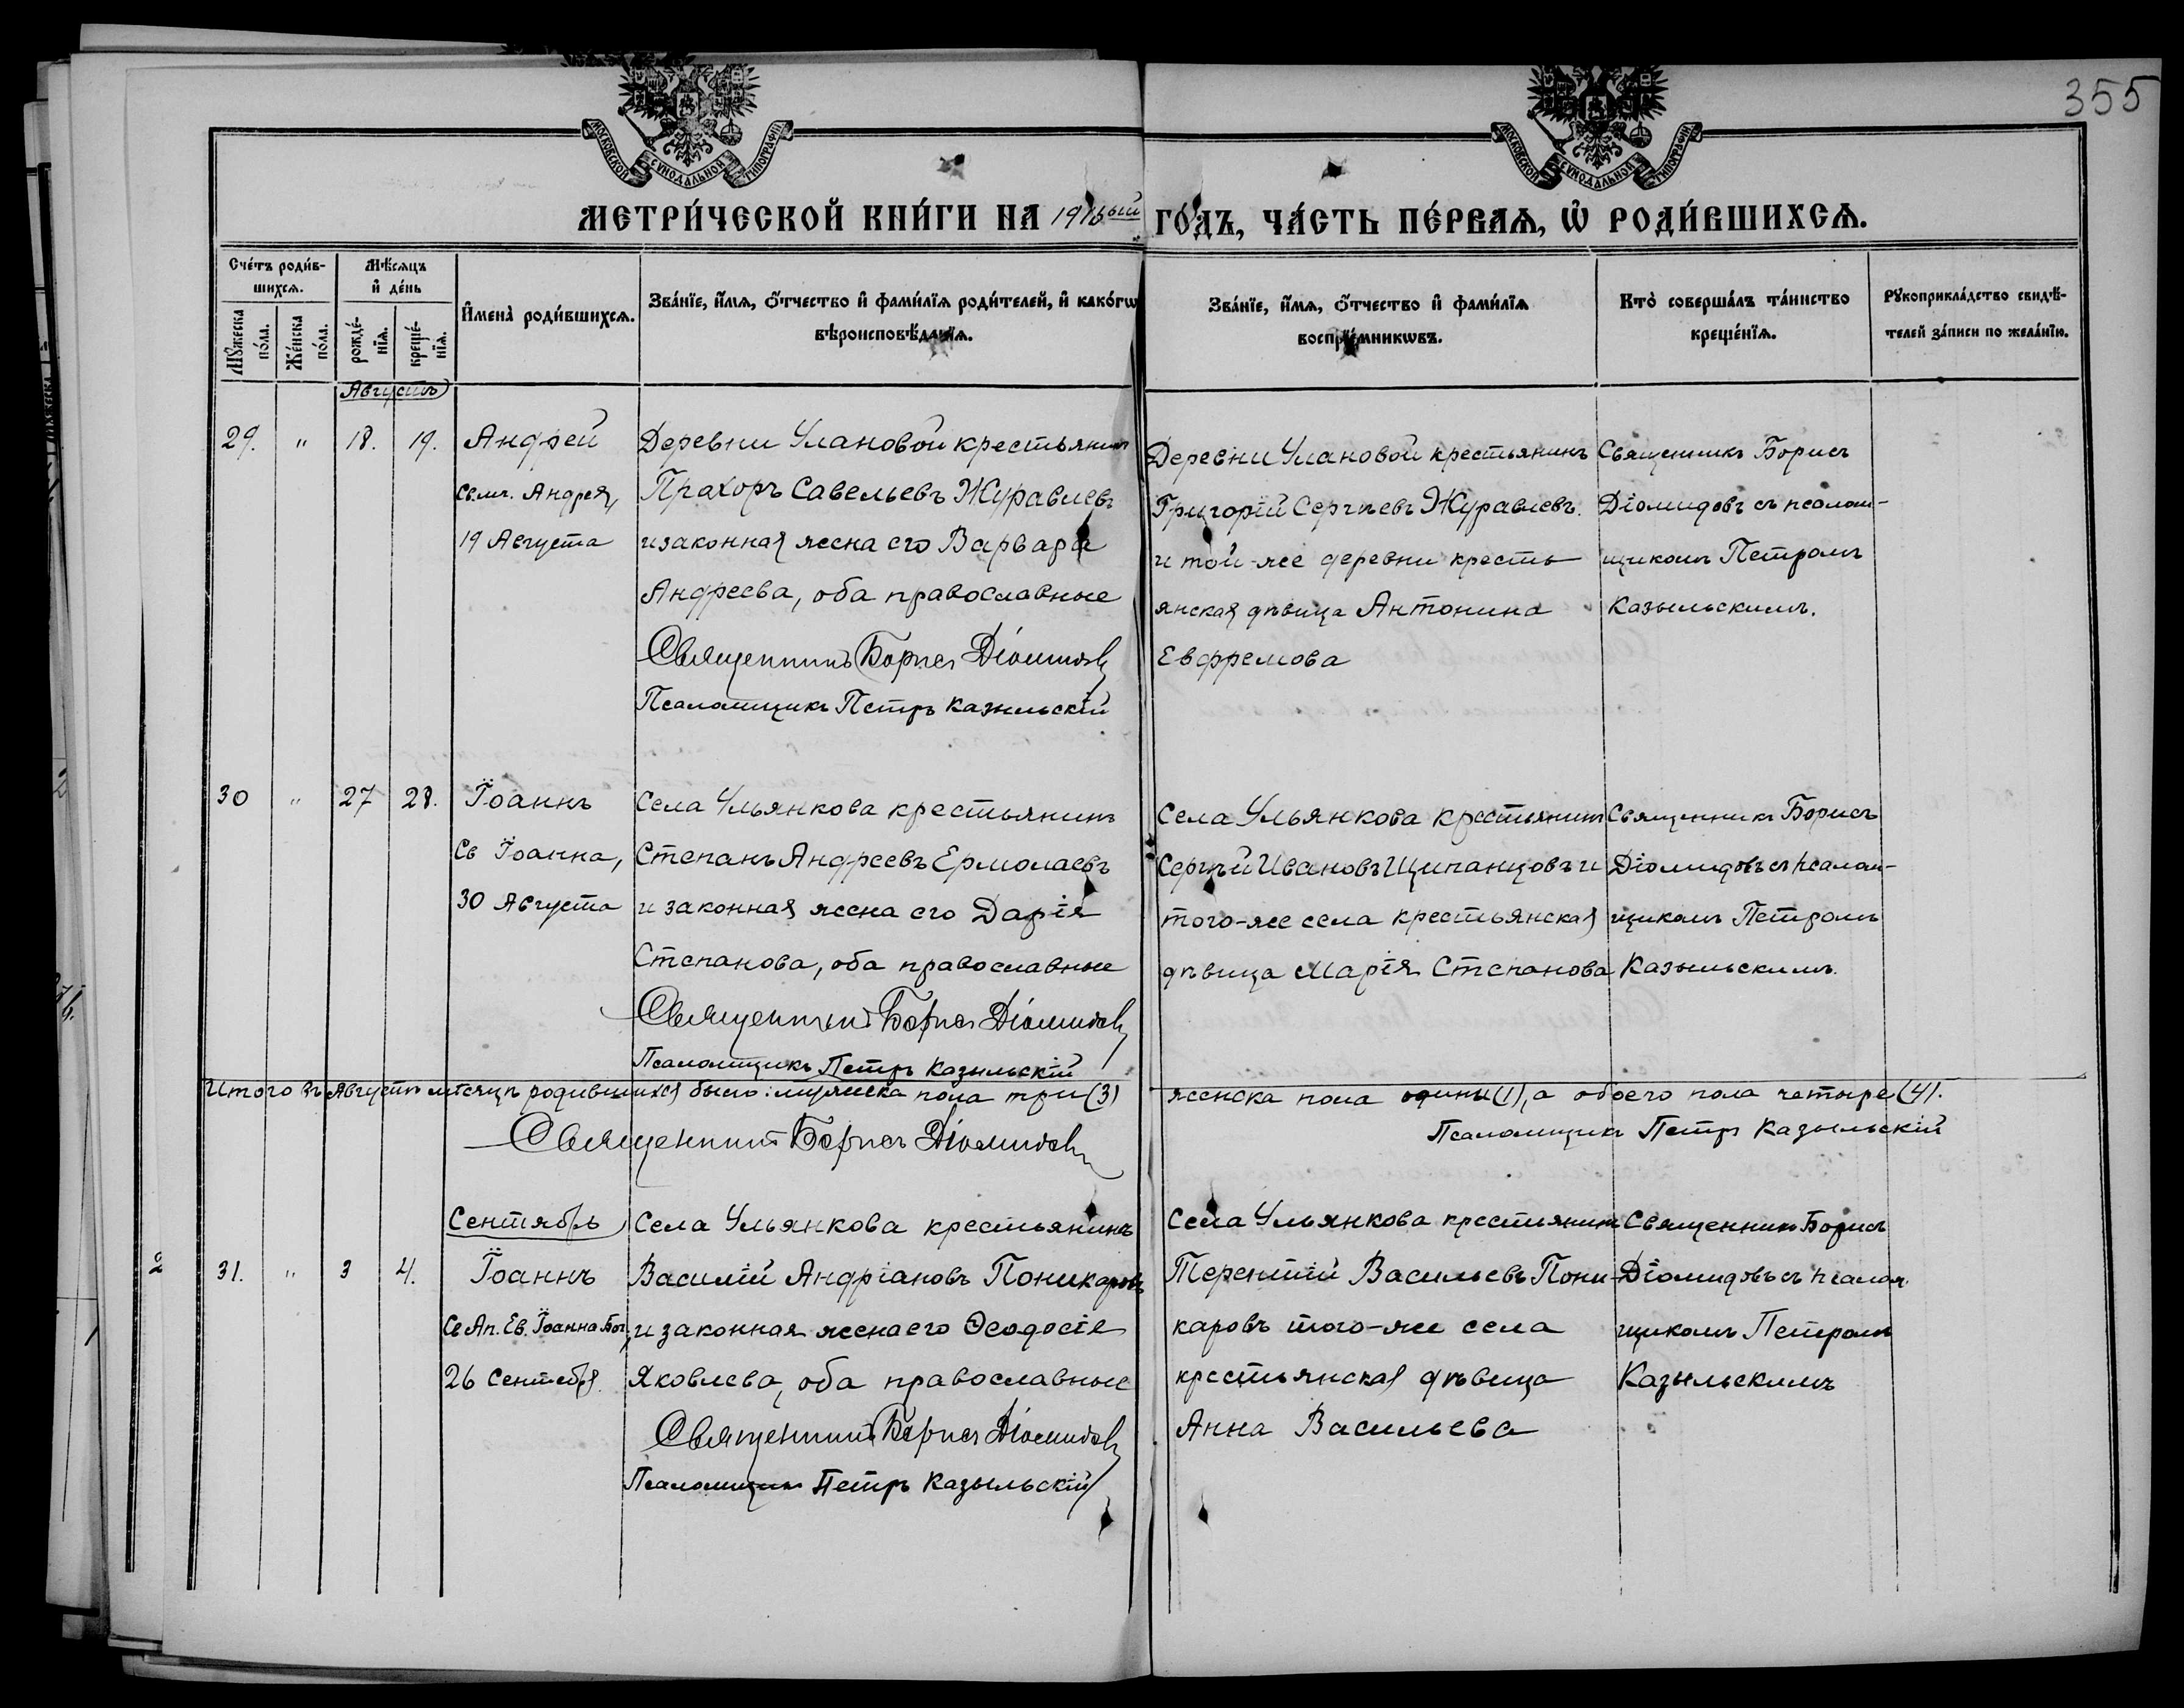 355
МОСКОВСКОЙ СѴНОДАЛЬНОЙ ТИПОГРАФІИ
МОСКОВСКОЙ СѴНОДАЛЬНОЙ ТИПОГРАФІИ
МЕТРИ́ЧЕСКОЙ КНИ́ГИ НА 1916ый ГО́ДЪ, ЧА́СТЬ ПЕ́РВАѦ, Ѡ҆ РОДИ́ВШИХСѦ.
Сче́тъ роди́в-
шихсѧ.
Мꙋ́жеска
по́ла.
Же́нска
по́ла.
Мѣ́сѧцъ
и҆ де́нь
рожде́-
нїѧ.
креще́-
нїѧ.
И҆мена̀ роди́вшихсѧ.
Зва́нїе, и҆́мѧ, ѻ҆́тчество и҆ фами́лїѧ роди́телей, и҆ како́гѡ
вѣроисповѣ́данїѧ.
Зва́нїе, и҆́мѧ, ѻ҆́тчество и҆ фами́лїѧ
воспрїе́мникѡвъ.
Кто̀ соверша́лъ та́инство
креще́нїѧ.
Рꙋкоприкла́дство свидѣ́-
телей за́писи по жела́нїю.
Августъ
29. " 18. 19.
Андрей
Свмч. Андрея,
19 Августа
Деревни Улановой крестьянинъ
Прахоръ Савельевъ Журавлевъ
и законная жена его Варвара
Андреева, оба православные
Священникъ Борисъ Діомидовъ
Псаломщикъ Петръ Казыльскій
Деревни Улановой крестьянинъ
Григорій Сергѣевъ Журавлевъ
и той-же деревни кресть
янская дѣвица Антонина
Евфремова
Священникъ Борисъ
Діомидовъ съ псалом-
щикомъ Петромъ
Казыльскимъ.
30 " 27 28.
Іоаннъ
Св Іоанна,
30 Августа
Села Ульянкова крестьянинъ
Степанъ Андреевъ Ермолаевъ
и законная жена его Дарія
Степанова, оба православные
Священникъ Борисъ Діомидовъ
Псаломщикъ Петръ Казыльскій
Села Ульянкова крестьянинъ
Сергѣй Ивановъ Щипанцовъ и
того-же села крестьянская
дѣвица Марія Степанова
Священникъ Борисъ
Діомидовъ съ псалом-
щикомъ Петромъ
Казыльскимъ.
Итого въ Августѣ мѣсяцѣ родившихся было: мужеска пола три (3) женска пола одинъ (1), а обоего пола четыре (4).
Священникъ Борисъ Діомидовъ
Псаломщикъ Петръ Казыльскій
Сентябрь
2 31. " 3 4.
Іоаннъ
Св Ап. Ев. Іоанна Бог,
26 Сентября
Села Ульянкова крестьянинъ
Василій Андріановъ Поникаровъ
и законная жена его Ѳеодосія
Яковлева, оба православные
Священникъ Борисъ Діомидовъ
Псаломщикъ Петръ Казыльскій
Села Ульянкова крестьянинъ
Терентій Васильевъ Пони-
каровъ того-же села
крестьянская дѣвица
Анна Васильева
Священникъ Борисъ
Діомидовъ съ псалом
щикомъ Петромъ
Казыльскимъ